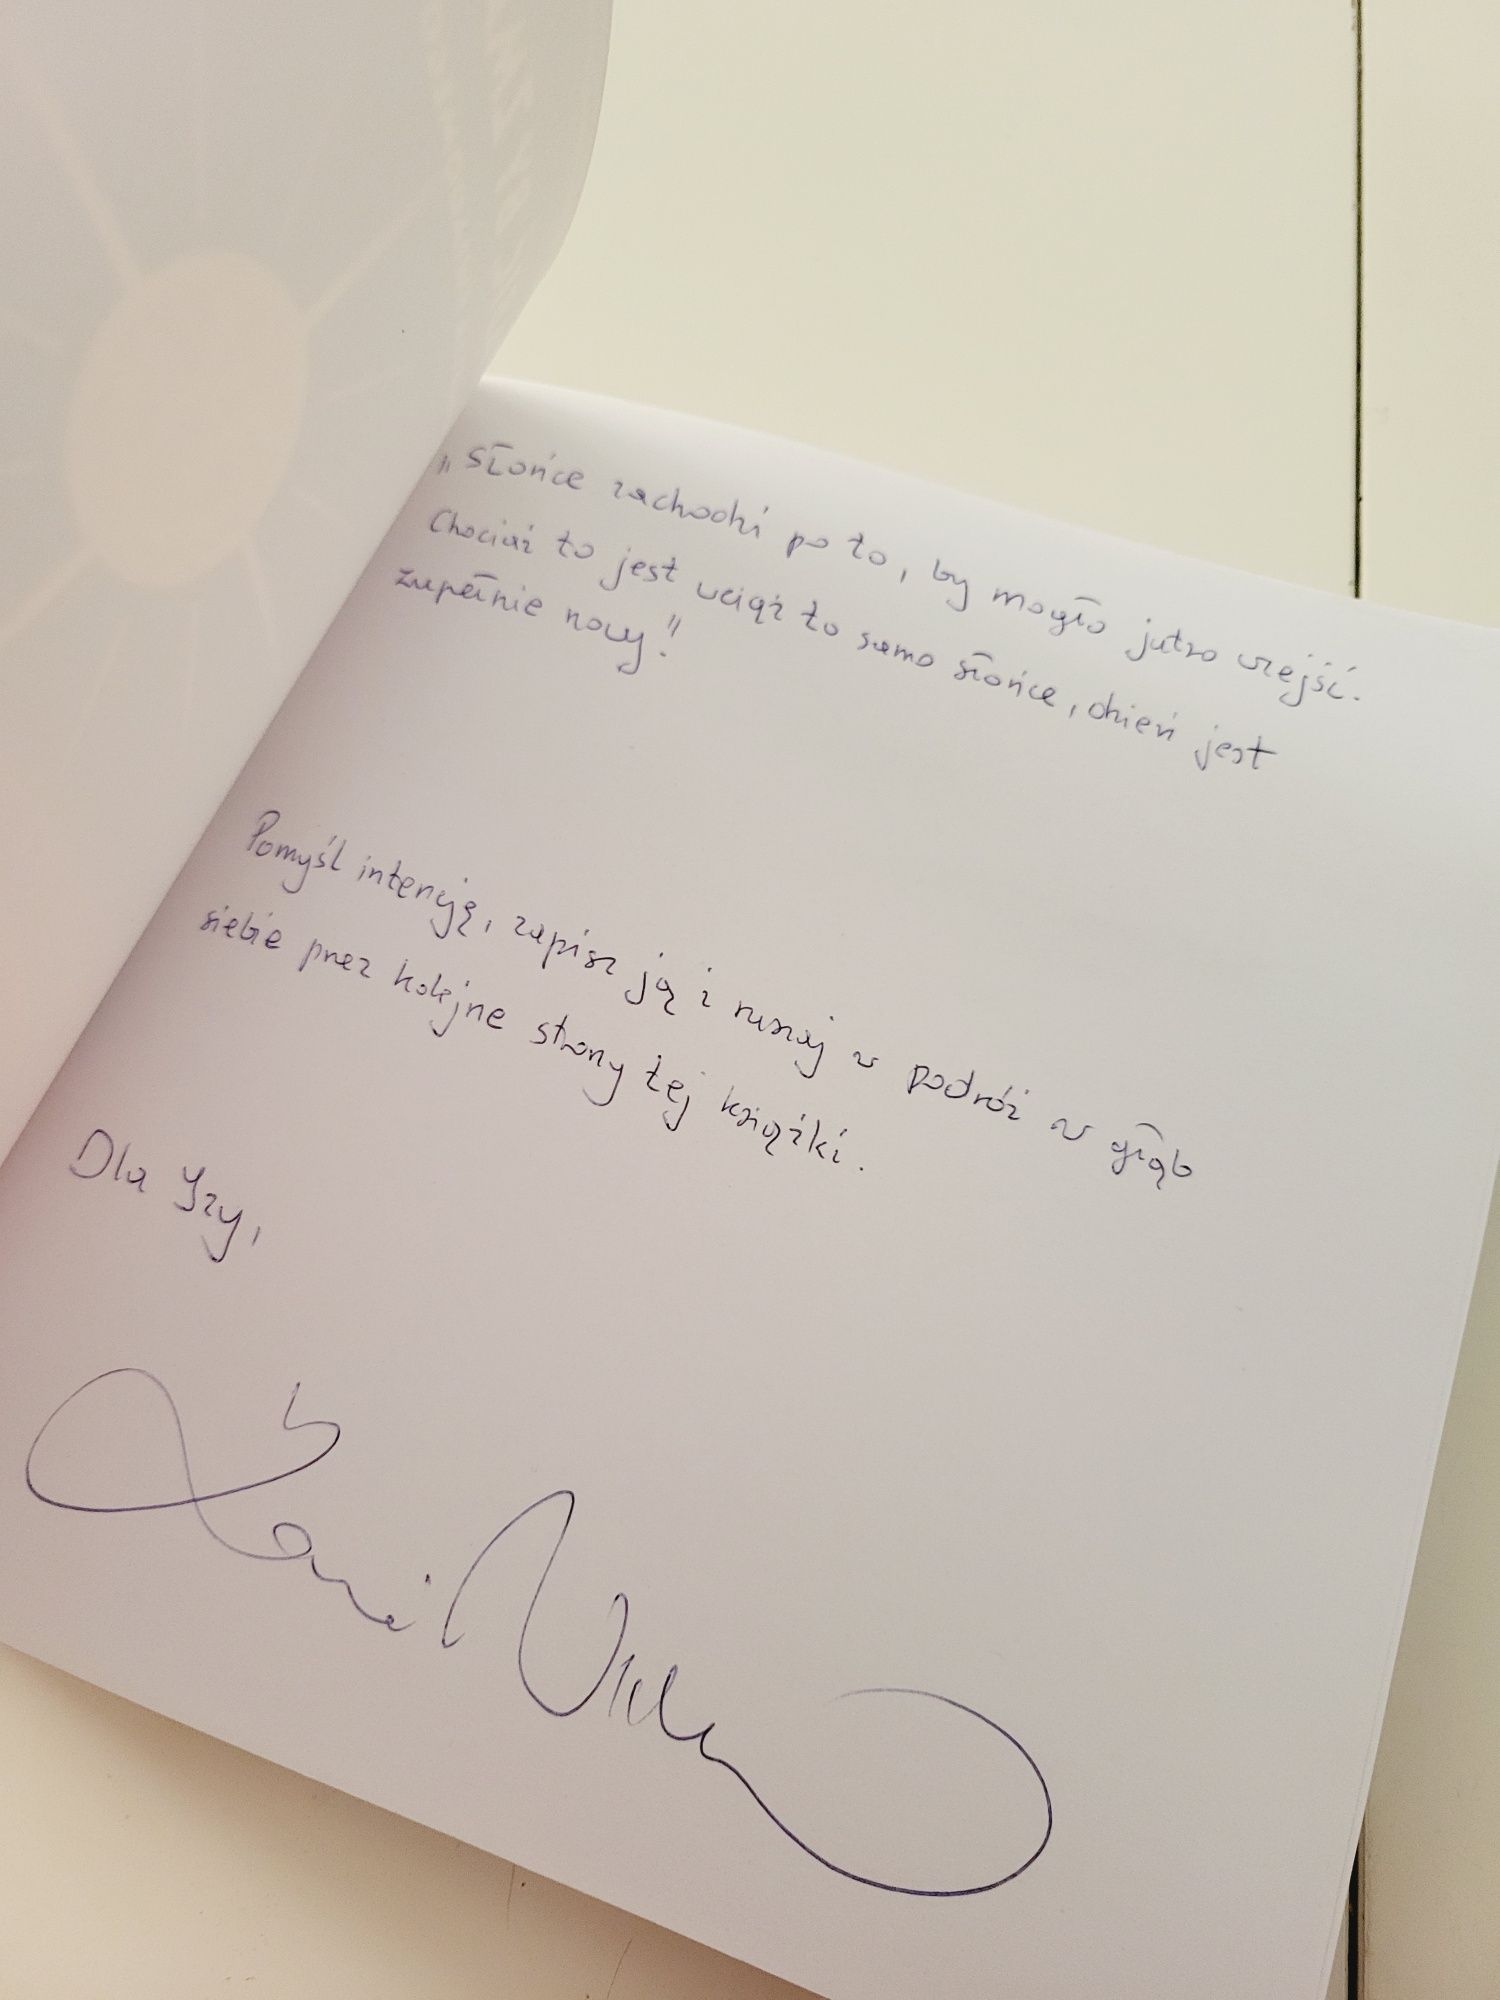 "Słońce zachodzi po to, by mogło jutro wzejść.
Chociaż to jest wciąż to samo słońce, dzień jest
zupełnie nowy!"
Pomyśl intencję, zapisz ją i ruszaj w podróż w głąb
siebie przez kolejne strony tej książki.
Dla Izy,